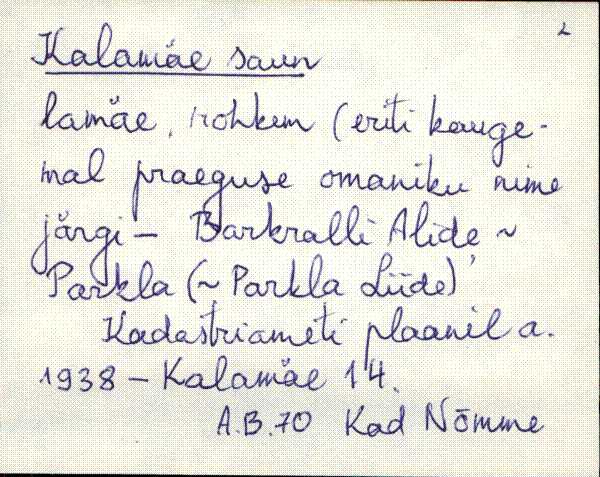 2
Kalamäe saun
lamäe, rohkem (eriti kauge-
mal praeguse omaniku nime
järgi – Barkralli Alide ~
Parkla (~ Parkla Liide)
Kadastriameti plaanil a.
1938 – Kalamäe 14.
A.B.70 Kad Nõmme